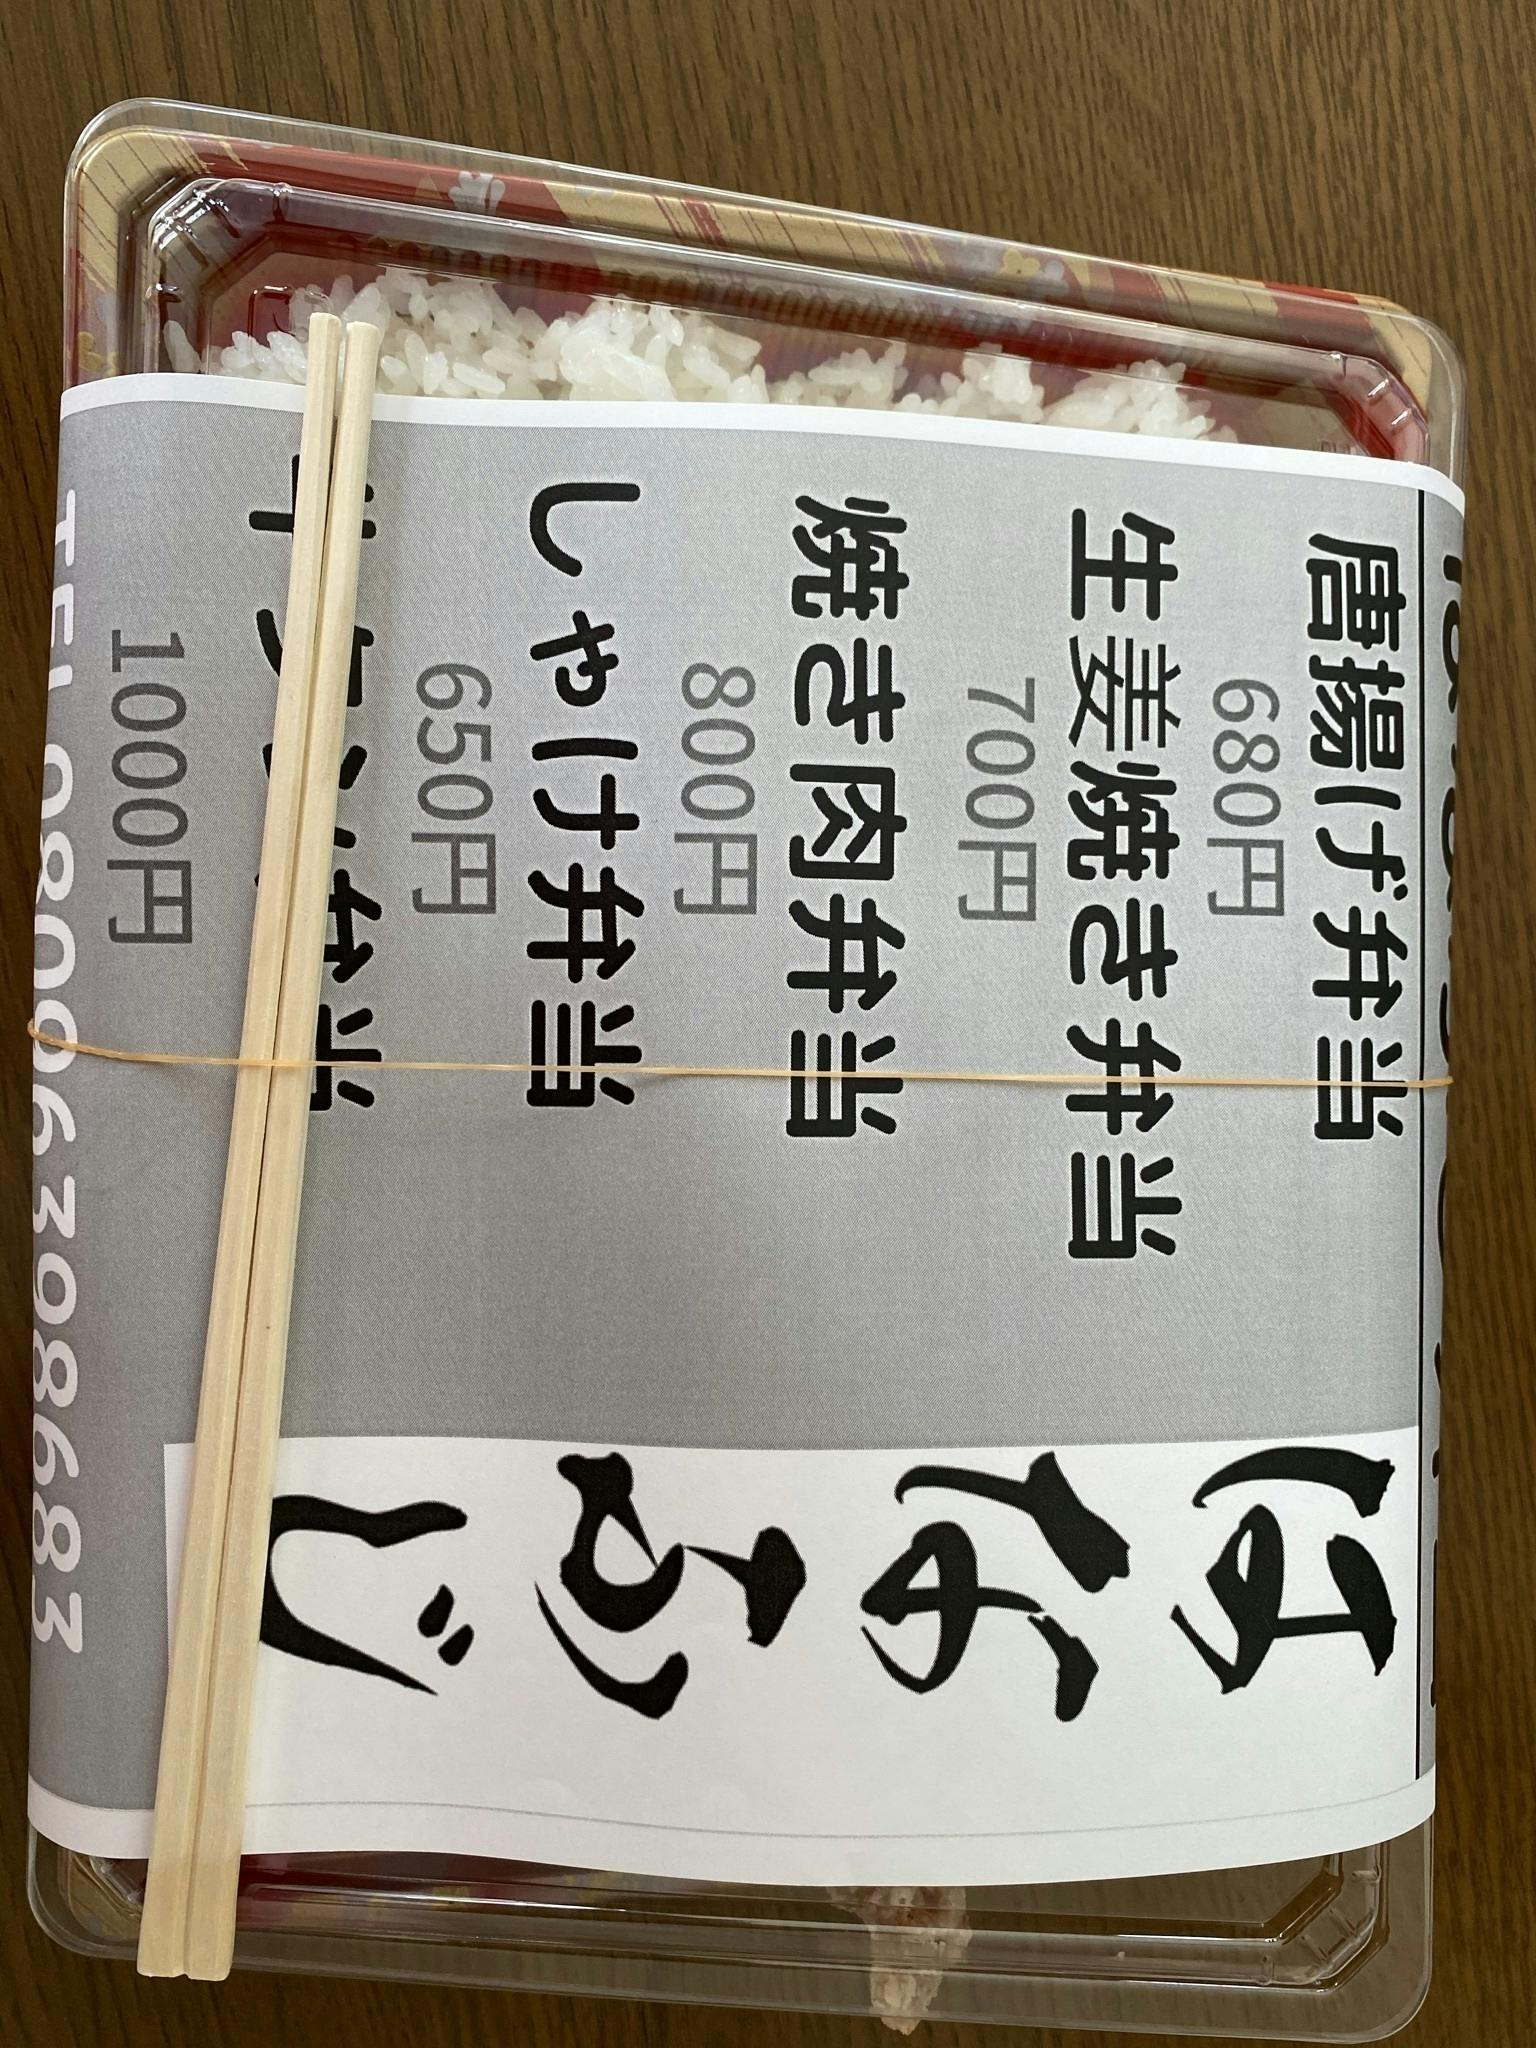 唐揚げ弁当
680円
生姜焼き弁当
700円
焼き肉弁当
800円
しゃけ弁当
650円
牛タン弁当
1000円
はなふじ
TEL 08096398683